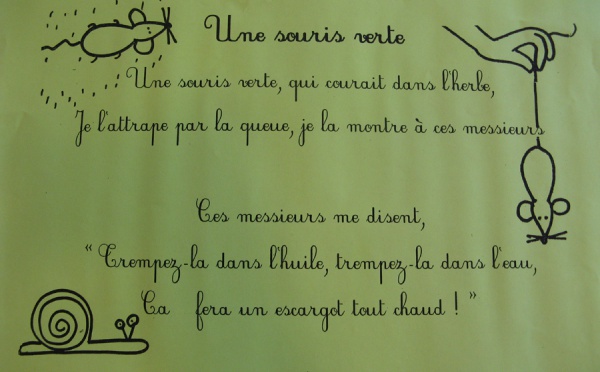 Une souris verte
Une souris verte, qui courait dans l'herbe,
Je l'attrape par la queue, je la montre à ces messieurs
Ces messieurs me disent,
“ Trempez-la dans l'huile, trempez-la dans l'eau,
Ca fera un escargot tout chaud ! ”